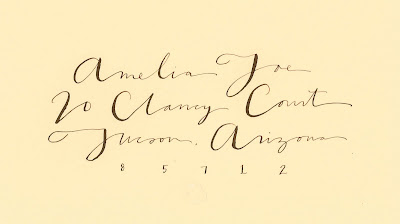 Amelia Joe
20 Clancy Court
Tucson, Arizona
8 5 7 1 2